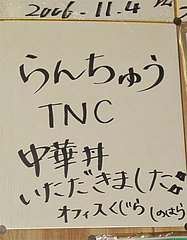 2006.11.4
らんちゅう
TNC
中華丼
いただきました!
オフィスくじら しのはら